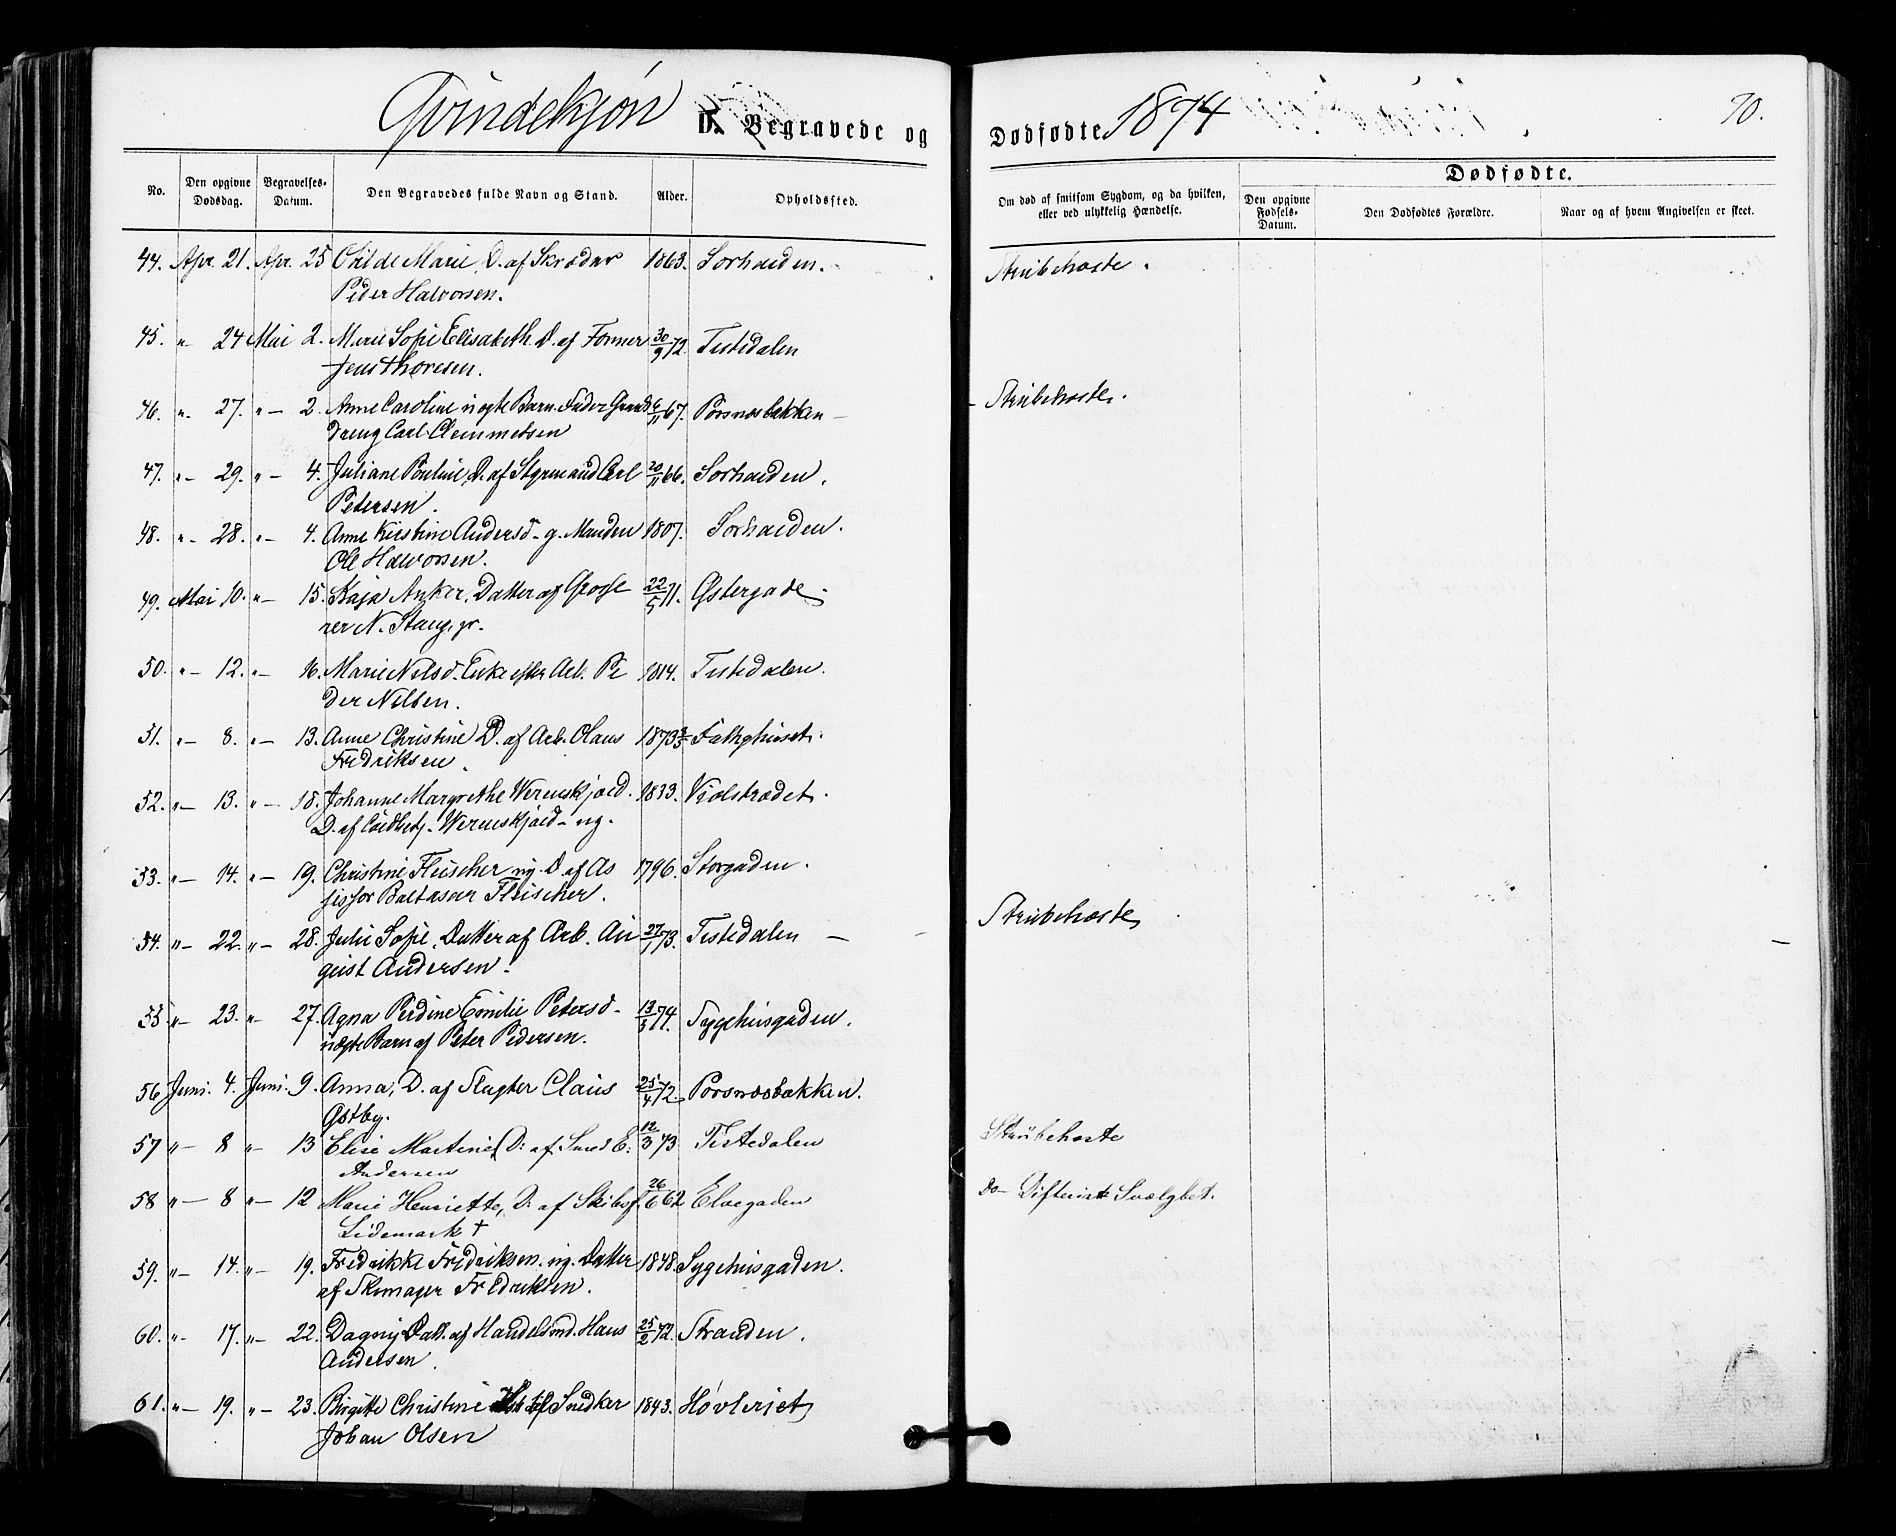 Qvindekjøn D. Begravede og Dødfødte 1874 70.
No. Den opgivne Dødsdag. Begravelses-Datum. Den Begravedes fulde Navn og Stand. Alder. Opholdssted. Om død af smitsom Sygdom, og da hvilken, eller ved ulykkelig Hændelse. Dødfødte. Den opgivne Fødsels-Datum. Den Dødfødtes Forældre. Naar og af hvem Angivelsen er skeet.
44. Apr. 21. Apr. 25 Otilde Marie, D. af Skræder 1863. Sørhalden. Strubehoste.
Peder Halvorsen.
45. " 24 Mai 2. Marie Sofie Elisabeth. D. af Former 30/9 72. Tistedalen
Jens Thoresen.
46. " 27. " — 2. Anne Caroline uægte Barn. Fader Gaards 6/11 67. Porsnæsbakken — Strubehoste.
dreng Carl Clemmetsen
47. " 29. " — 4. Juliane Pouline, D. af Styrmand Carl 20/11 66. Sørhalden.
Petersen.
48. " 28. " — 4. Anne Kirstine Andersd. g. Manden 1807. Sørhalden.
Ole Halvorsen.
49. Mai 10. " — 15. Kaja Anker, Datter af Grosse 22/5 71. Østergade.
rer N. Stang, jr.
50. " — 12. " — 16. Marie Nilsd. Enke efter Arb. Pe 1814. Tistedalen.
der Nilsen.
51. " — 8. " — 13. Anne Christine D. af Arb. Olaus 1873 Fattighuset.
Fredriksen.
52. " — 13. " — 18. Johanne Margrethe Werenskjold. 1833. Violstrædet.
D. af Werenskjold - ug.
53. " — 14. " — 19. Christine Fleischer ug. D. af As 1796. Storgaden.
sessor Baltasar Fleischer.
54. " — 22. " — 28. Julie Sofie, Datter af Arb. Au 27/1 73. Tistedalen — Strubehoste
gust Andersen.
55 " — 23. " — 27. Agna Perdine Emilie Petersd. 13/3 74. Sygehusgaden.
uægte Barn af Peter Pedersen.
56 Juni. 4. Juni. 9. Anna, D. af Slagter Claus 25/4 72. Porsnæsbakken.
Østby.
57 " — 8 " — 13 Elise Martine, D: af Smed E: 12/3 73 Tistedalen Strubehoste
Andersen
58 " — 8 " — 12 Marie Henriette, D: af Skibsf. 26/6 62 Elvegaden Do — Difterist Svælgbet.
Lidemark †
59. " — 14. " — 19. Fredrikke Fredriksen. ug. Datter 1848. Sygehusgaden.
af Skomager Fredriksen.
60. " — 17. " — 22. Dagny Datt. af Handelsmd. Hans 25/2 72. Stranden.
Andersen.
61. " — 19. " — 23. Birgitte Christine Snedker 1843. Høvleriet
Johan Olsen